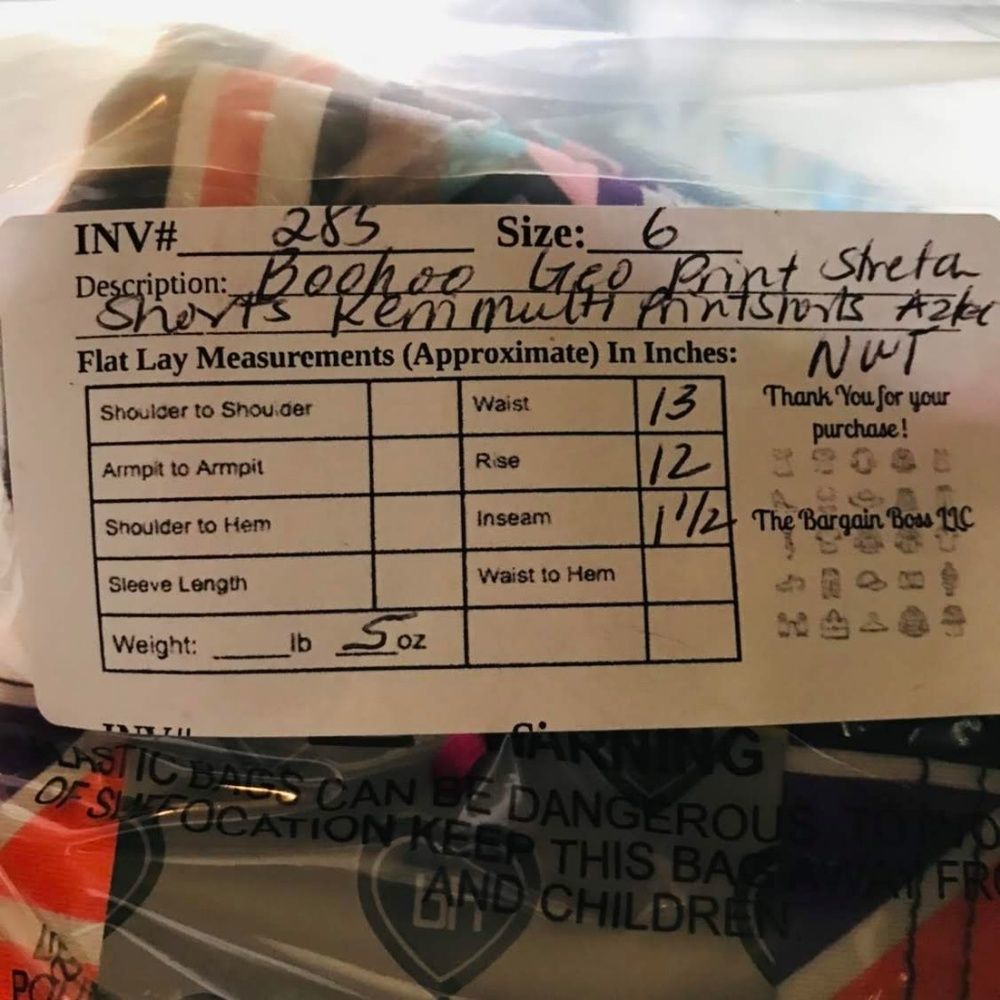 INV# 285 Size: 6
Description: Boohoo Geo Print Stretch
Shorts Kem multi Printshorts Aztec
Flat Lay Measurements (Approximate) In Inches: NWT
Shoulder to Shoulder Waist 13
Armpit to Armpit Rise 12
Shoulder to Hem Inseam 1 1/2
Sleeve Length Waist to Hem
Weight: ____lb 5 oz
Thank You for your
purchase!
The Bargain Boss LLC
INV#
WARNING
PLASTIC BAGS CAN BE DANGEROUS. TO AVO
OF SUFFOCATION KEEP THIS BAG AWAY FR
AND CHILDREN